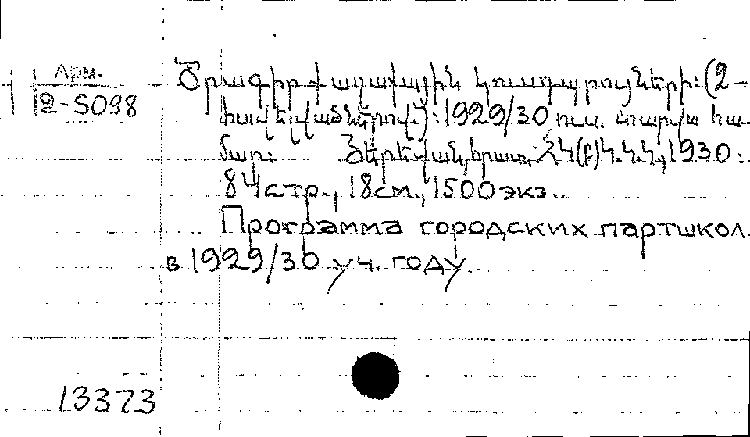 Арм.
2-5098
Ծրագիր քաղաքային կուսդպրոցների: (2-
1929/30 ուս. տարվա հա-
մար: Յերեվան, հրատ. ՀԿ(բ)Կ.Կ.Կ., 1930:
84 стр., 18 см., 1500 экз.
Программа городских партшкол
в 1929/30 уч. году
13373